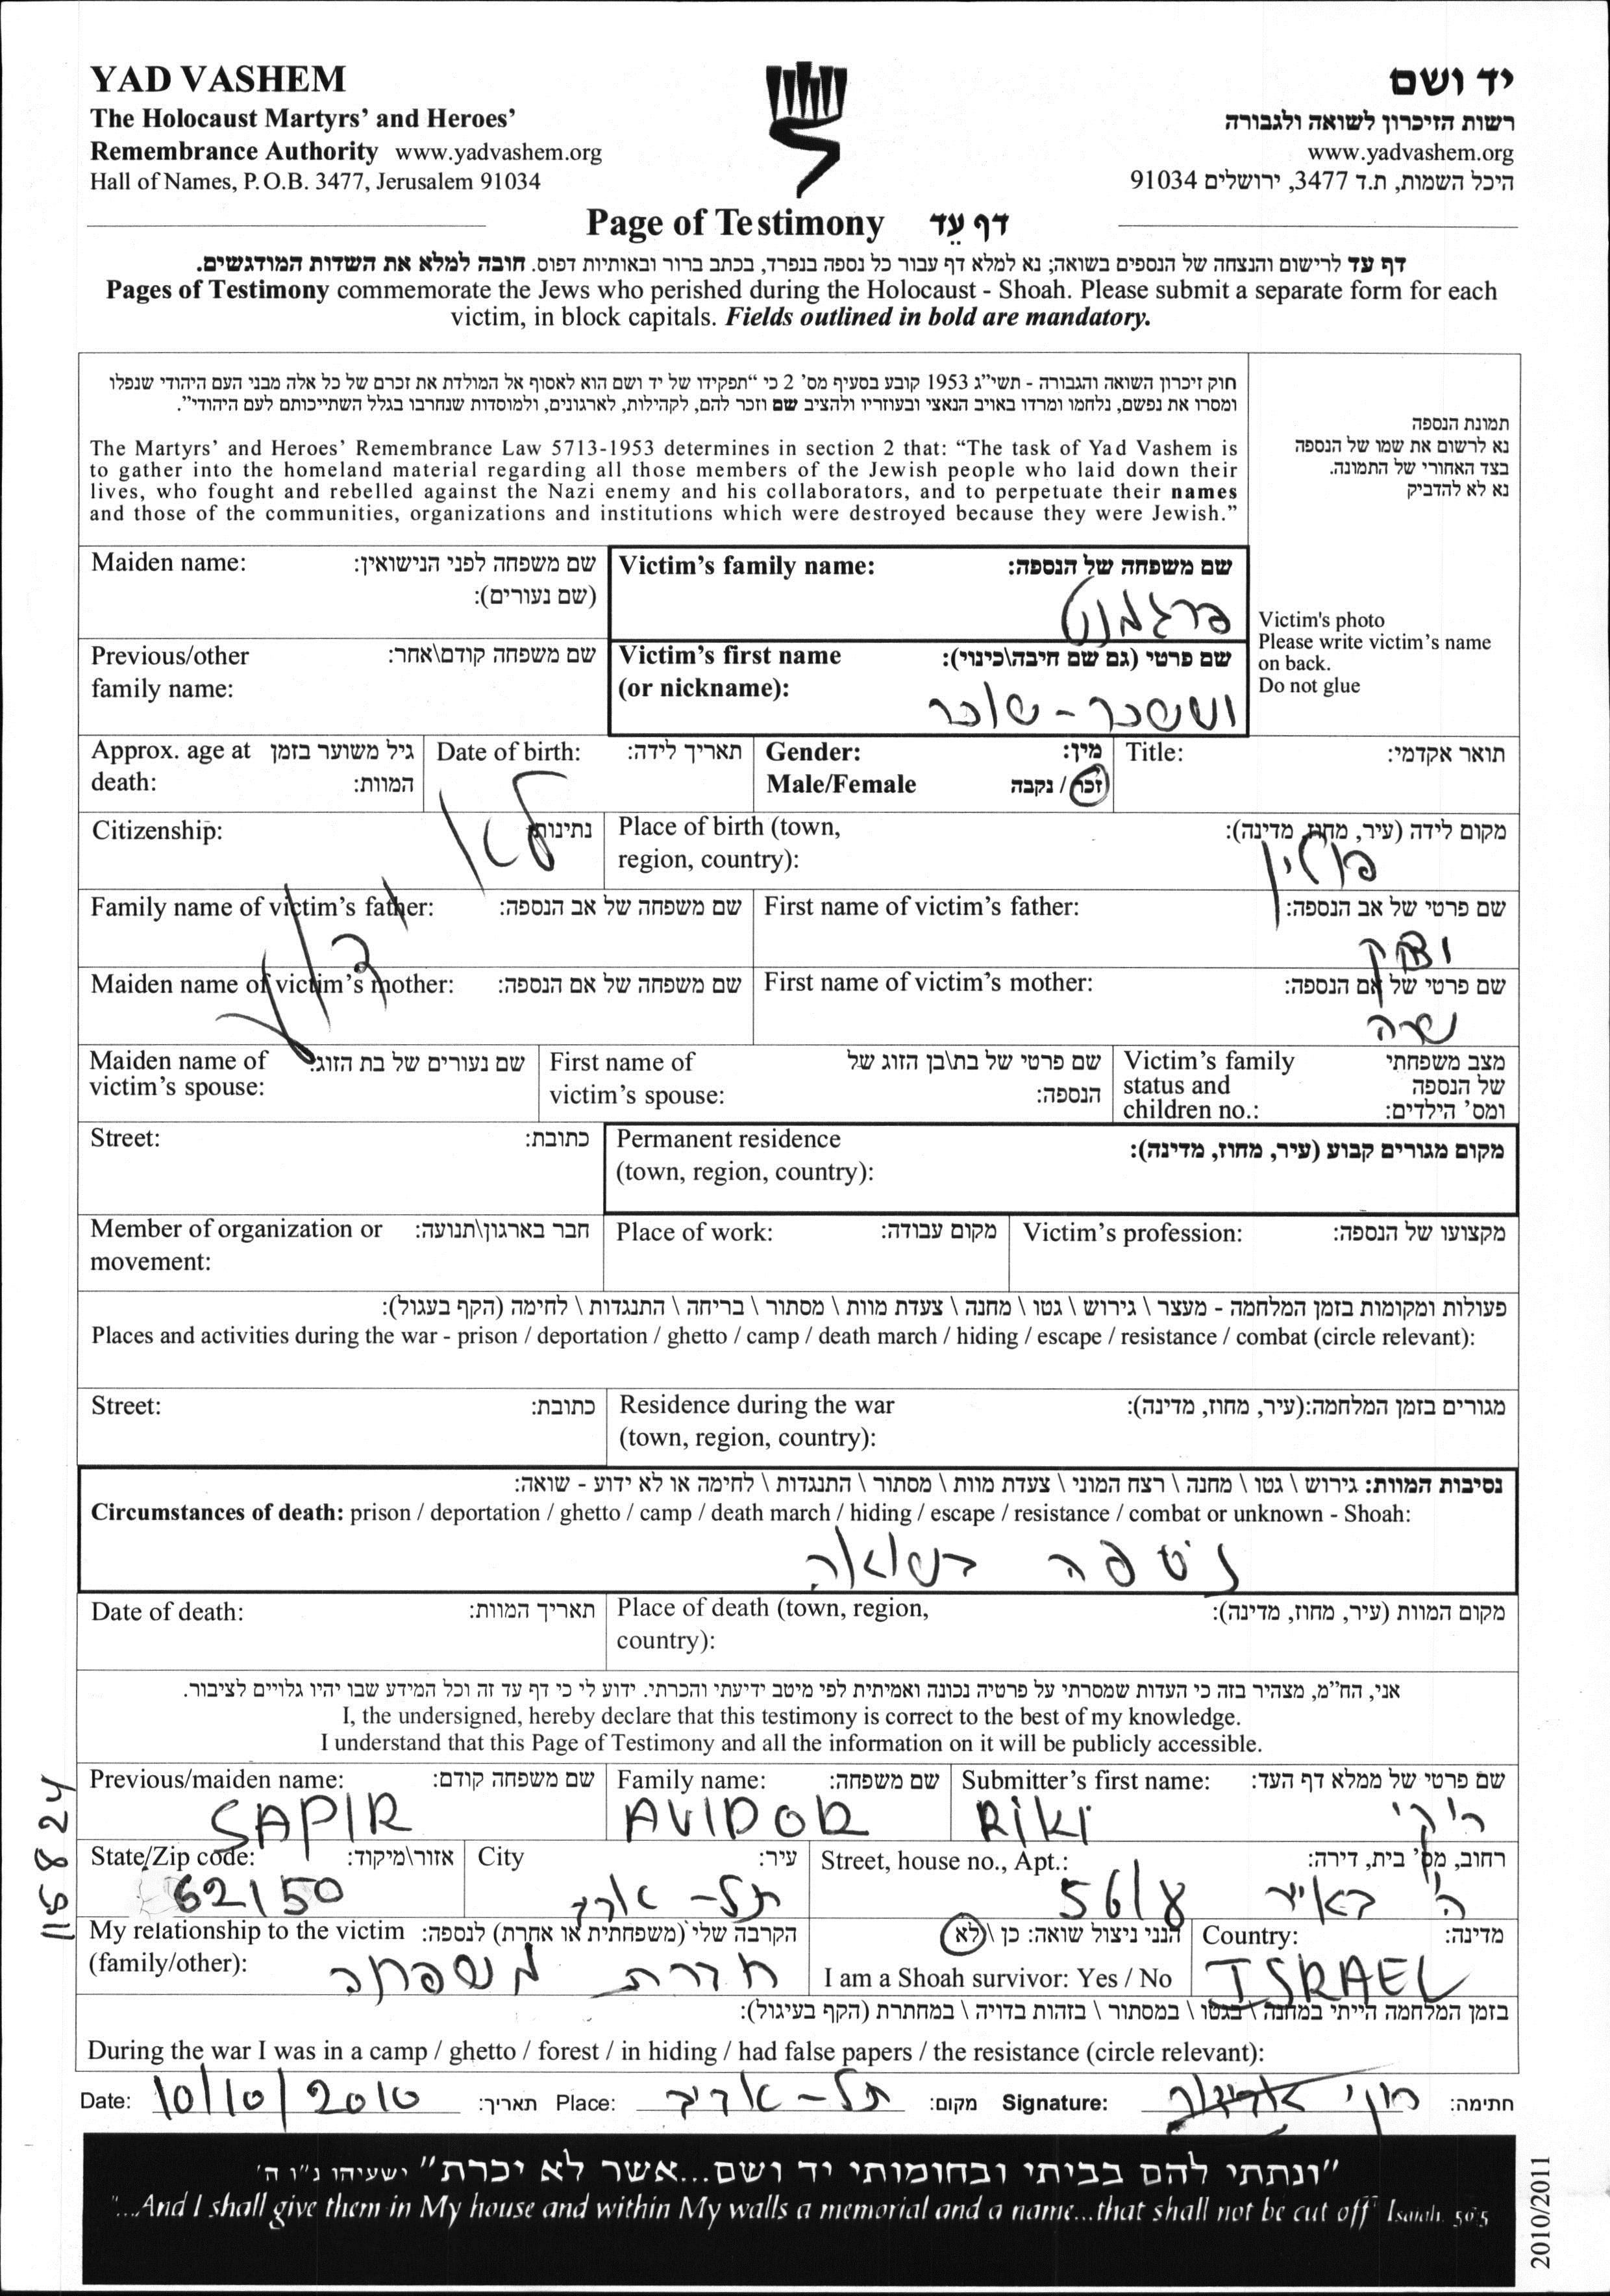 YAD VASHEM
The Holocaust Martyrs' and Heroes'
Remembrance Authority www.yadvashem.org
Hall of Names, P.O.B. 3477, Jerusalem 91034
יד ושם
רשות הזיכרון לשואה ולגבורה
www.yadvashem.org
היכל השמות, ת.ד 3477, ירושלים 91034
Page of Testimony דף עֵד
דף עד לרישום והנצחה של הנספים בשואה; נא למלא דף עבור כל נספה בנפרד, בכתב ברור ובאותיות דפוס. חובה למלא את השדות המודגשים.
Pages of Testimony commemorate the Jews who perished during the Holocaust - Shoah. Please submit a separate form for each
victim, in block capitals. Fields outlined in bold are mandatory.
חוק זיכרון השואה והגבורה - תשי"ג 1953 קובע בסעיף מס' 2 כי "תפקידו של יד ושם הוא לאסוף אל המולדת את זכרם של כל אלה מבני העם היהודי שנפלו
ומסרו את נפשם, נלחמו ומרדו באויב הנאצי ובעוזריו ולהציב שם וזכר להם, לקהילות, לארגונים, ולמוסדות שנחרבו בגלל השתייכותם לעם היהודי".
The Martyrs' and Heroes' Remembrance Law 5713-1953 determines in section 2 that: "The task of Yad Vashem is
to gather into the homeland material regarding all those members of the Jewish people who laid down their
lives, who fought and rebelled against the Nazi enemy and his collaborators, and to perpetuate their names
and those of the communities, organizations and institutions which were destroyed because they were Jewish."
תמונת הנספה
נא לרשום את שמו של הנספה
בצד האחורי של התמונה.
נא לא להדביק
Victim's photo
Please write victim's name
on back.
Do not glue
Maiden name: שם משפחה לפני הנישואין:
(שם נעורים):
Victim's family name: שם משפחה של הנספה:
פרגמנט
Previous/other שם משפחה קודם\אחר:
family name:
Victim's first name שם פרטי (גם שם חיבה\כינוי):
(or nickname):
יששכר - שוכר
Approx. age at גיל משוער בזמן
death: המוות:
Date of birth: תאריך לידה:
Gender: מין:
Male/Female זכר / נקבה
Title: תואר אקדמי:
Citizenship: נתינות
Place of birth (town, מקום לידה (עיר, מחוז, מדינה):
region, country):
פולין
לא ידוע
Family name of victim's father: שם משפחה של אב הנספה:
First name of victim's father: שם פרטי של אב הנספה:
יצחק
Maiden name of victim's mother: שם משפחה של אם הנספה:
First name of victim's mother: שם פרטי של אם הנספה:
שרה
Maiden name of שם נעורים של בת הזוג:
victim's spouse:
First name of שם פרטי של בת\בן הזוג של
victim's spouse: הנספה:
Victim's family מצב משפחתי
status and של הנספה
children no.: ומס' הילדים:
Street: כתובת:
Permanent residence מקום מגורים קבוע (עיר, מחוז, מדינה):
(town, region, country):
Member of organization or חבר בארגון\תנועה:
movement:
Place of work: מקום עבודה:
Victim's profession: מקצועו של הנספה:
פעולות ומקומות בזמן המלחמה - מעצר \ גירוש \ גטו \ מחנה \ צעדת מוות \ מסתור \ בריחה \ התנגדות \ לחימה (הקף בעגול):
Places and activities during the war - prison / deportation / ghetto / camp / death march / hiding / escape / resistance / combat (circle relevant):
Street: כתובת:
Residence during the war מגורים בזמן המלחמה:(עיר, מחוז, מדינה):
(town, region, country):
נסיבות המוות: גירוש \ גטו \ מחנה \ רצח המוני \ צעדת מוות \ מסתור \ התנגדות \ לחימה או לא ידוע - שואה:
Circumstances of death: prison / deportation / ghetto / camp / death march / hiding / escape / resistance / combat or unknown - Shoah:
נספה בשואה
Date of death: תאריך המוות:
Place of death (town, region, מקום המוות (עיר, מחוז, מדינה):
country):
אני, הח"מ, מצהיר בזה כי העדות שמסרתי על פרטיה נכונה ואמיתית לפי מיטב ידיעתי והכרתי. ידוע לי כי דף עד זה וכל המידע שבו יהיו גלויים לציבור.
I, the undersigned, hereby declare that this testimony is correct to the best of my knowledge.
I understand that this Page of Testimony and all the information on it will be publicly accessible.
Previous/maiden name: שם משפחה קודם:
SAPIR
Family name: שם משפחה:
AVIDOR
Submitter's first name: שם פרטי של ממלא דף העד:
RIKI ריקי
State/Zip code: אזור\מיקוד:
62150
City עיר:
תל - אביב
Street, house no., Apt.: רחוב, מס' בית, דירה:
ה' באייר 56/8
My relationship to the victim הקרבה שלי (משפחתית או אחרת) לנספה:
(family/other):
חברת משפחה
הנני ניצול שואה: כן \ לא
I am a Shoah survivor: Yes / No
Country: מדינה:
ISRAEL
בזמן המלחמה הייתי במחנה \ בגטו \ במסתור \ בזהות בדויה \ במחתרת (הקף בעיגול):
During the war I was in a camp / ghetto / forest / in hiding / had false papers / the resistance (circle relevant):
Date: 10/10/2010 תאריך: Place: תל - אביב מקום: Signature: חתימה:
"ונתתי להם בביתי ובחומותי יד ושם...אשר לא יכרת" ישעיהו נ"ו ה'
"...And I shall give them in My house and within My walls a memorial and a name...that shall not be cut off" Isaiah. 56:5
2010/2011